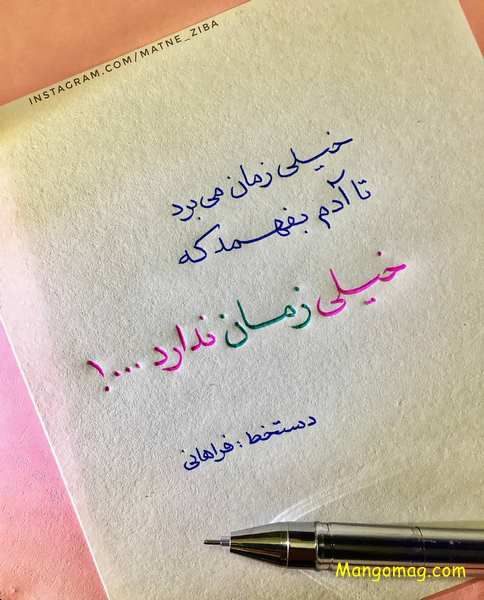 INSTAGRAM.COM/MATNE_ZIBA
خیلی زمان می‌برد
تا آدم بفهمد که
خیلی زمان ندارد ...!
دستخط : فراهانی
Mangomag.com